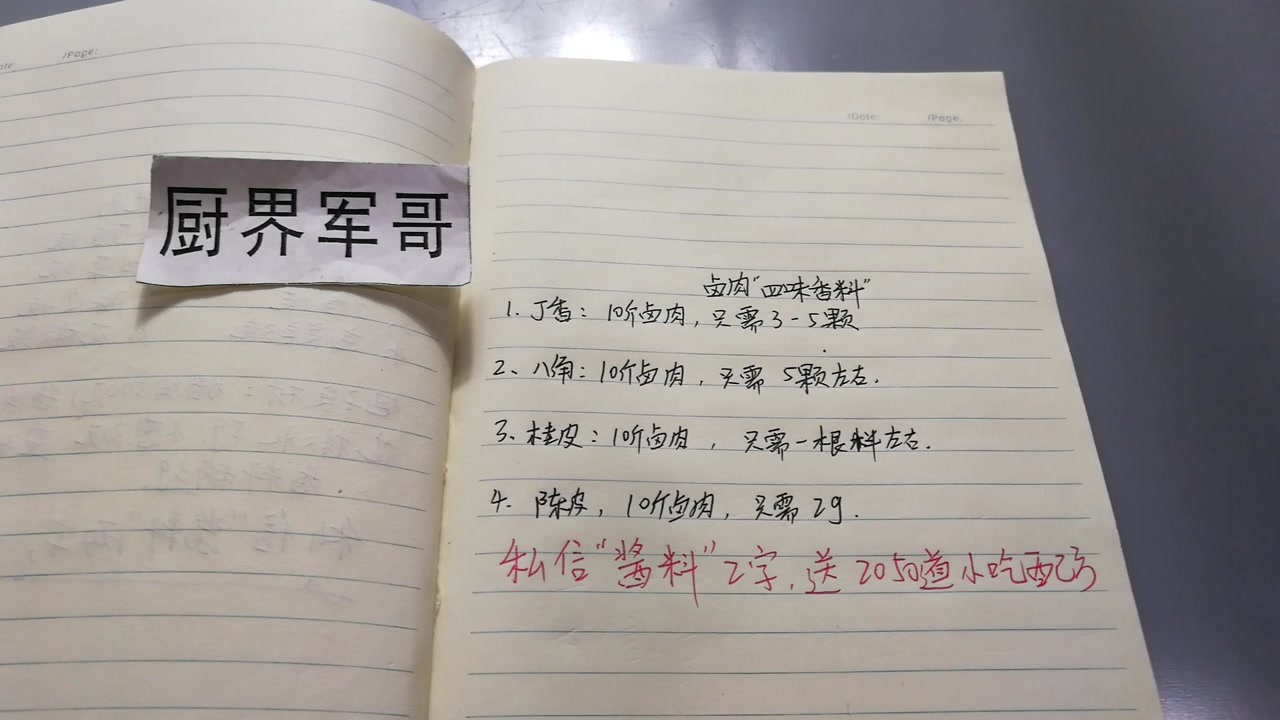 /Page:
/Date:
/Page:
厨界军哥
卤肉“四味香料”
1. 丁香：10斤卤肉，只需3-5颗
2、八角：10斤卤肉，只需 5颗左右.
3、桂皮：10斤卤肉，只需一根料左右.
4. 陈皮，10斤卤肉，只需 2g.
私信“酱料”2字，送2050道小吃配方